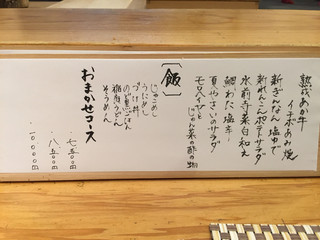 熟成あか牛
イチボあみ焼
新ぎんなん 塩ゆで
新れんこんポテトサラダ
水前寺菜白和え
鯛わた塩辛
夏やさいのサラダ
モロヘイヤと
じゅん菜の酢の物
〔飯〕
じゃこめし
うにめし
づけ丼
稲庭うどん
そうめん
おまかせコース
・七五〇〇円
・八五〇〇円
・一〇〇〇〇円